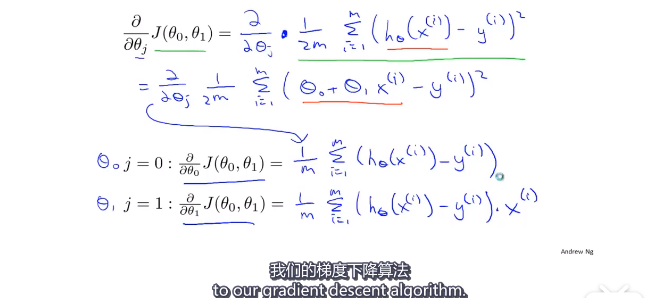 ∂/∂θⱼ J(θ₀, θ₁) = ∂/∂θⱼ · 1/2m ∑ᵢ₌₁ᵐ (h_θ(x⁽ⁱ⁾) − y⁽ⁱ⁾)²
= ∂/∂θⱼ 1/2m ∑ᵢ₌₁ᵐ (θ₀ + θ₁ x⁽ⁱ⁾ − y⁽ⁱ⁾)²
θ₀ j = 0 : ∂/∂θ₀ J(θ₀, θ₁) = 1/m ∑ᵢ₌₁ᵐ (h_θ(x⁽ⁱ⁾) − y⁽ⁱ⁾)
θ₁ j = 1 : ∂/∂θ₁ J(θ₀, θ₁) = 1/m ∑ᵢ₌₁ᵐ (h_θ(x⁽ⁱ⁾) − y⁽ⁱ⁾) · x⁽ⁱ⁾
Andrew Ng
我们的梯度下降算法
to our gradient descent algorithm.